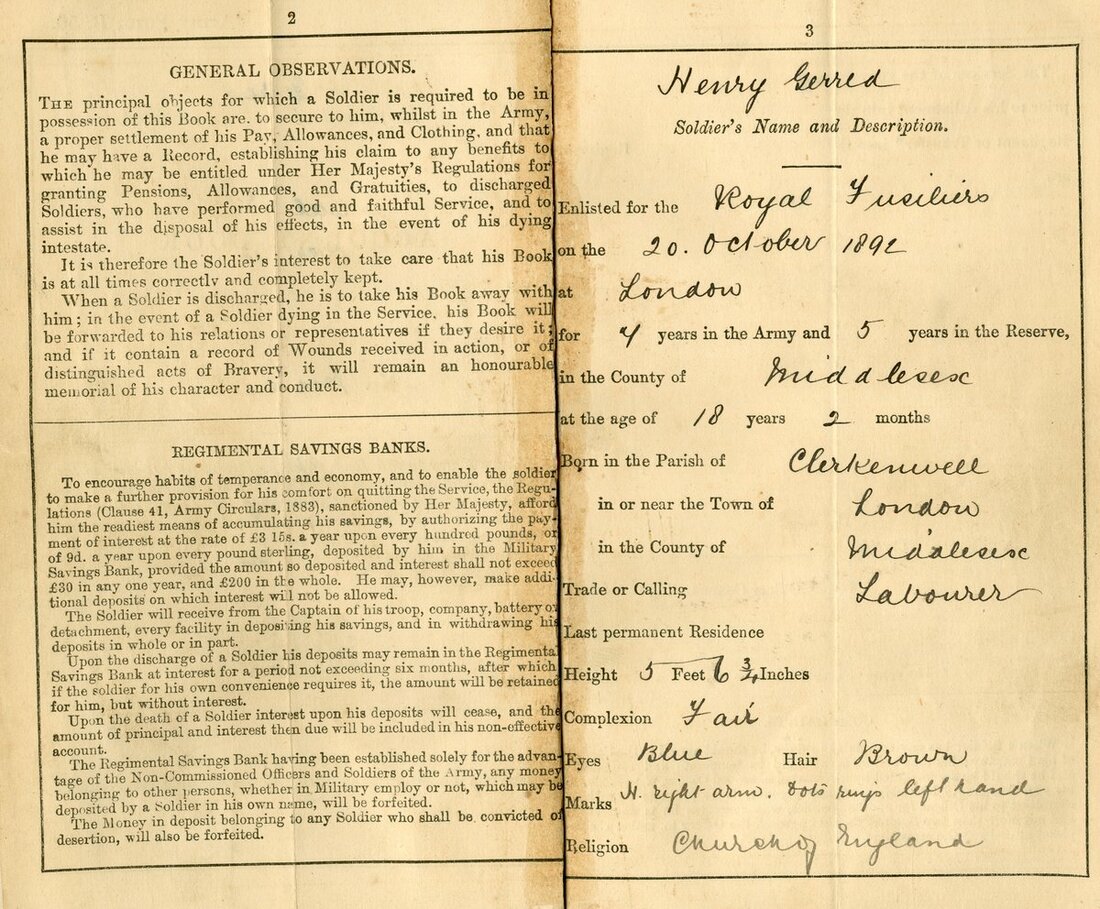 2
GENERAL OBSERVATIONS.
THE principal objects for which a Soldier is required to be in
possession of this Book are. to secure to him, whilst in the Army,
a proper settlement of his Pay, Allowances, and Clothing, and that
he may have a Record, establishing his claim to any benefits to
which he may be entitled under Her Majesty's Regulations for
granting Pensions, Allowances, and Gratuities, to discharged
Soldiers, who have performed good and faithful Service, and to
assist in the disposal of his effects, in the event of his dying
intestate.
It is therefore the Soldier's interest to take care that his Book
is at all times correctly and completely kept.
When a Soldier is discharged, he is to take his Book away with
him; in the event of a Soldier dying in the Service, his Book will
be forwarded to his relations or representatives if they desire it;
and if it contain a record of Wounds received in action, or of
distinguished acts of Bravery, it will remain an honourable
memorial of his character and conduct.
REGIMENTAL SAVINGS BANKS.
To encourage habits of temperance and economy, and to enable the soldier
to make a further provision for his comfort on quitting the Service, the Regu-
lations (Clause 41, Army Circulars, 1883), sanctioned by Her Majesty, afford
him the readiest means of accumulating his savings, by authorizing the pay-
ment of interest at the rate of £3 15s. a year upon every hundred pounds, or
of 9d. a year upon every pound sterling, deposited by him in the Military
Savings Bank, provided the amount so deposited and interest shall not exceed
£30 in any one year, and £200 in the whole. He may, however, make addi-
tional deposits on which interest will not be allowed.
The Soldier will receive from the Captain of his troop, company, battery or
detachment, every facility in depositing his savings, and in withdrawing his
deposits in whole or in part.
Upon the discharge of a Soldier his deposits may remain in the Regimental
Savings Bank at interest for a period not exceeding six months, after which
if the soldier for his own convenience requires it, the amount will be retained
for him, but without interest.
Upon the death of a Soldier interest upon his deposits will cease, and the
amount of principal and interest then due will be included in his non-effective
account.
The Regimental Savings Bank having been established solely for the advan-
tage of the Non-Commissioned Officers and Soldiers of the Army, any money
belonging to other persons, whether in Military employ or not, which may be
deposited by a Soldier in his own name, will be forfeited.
The Money in deposit belonging to any Soldier who shall be convicted of
desertion, will also be forfeited.
3
Henry Gerred
Soldier's Name and Description.
Enlisted for the Royal Fusiliers
on the 20. October 1892
at London
for 7 years in the Army and 5 years in the Reserve,
in the County of Middlesex
at the age of 18 years 2 months
Born in the Parish of Clerkenwell
in or near the Town of London
in the County of Middlesex
Trade or Calling Labourer
Last permanent Residence
Height 5 Feet 6 3/4 Inches
Complexion Fair
Eyes Blue Hair Brown
Marks H. right arm. Dots rings left hand
Religion Church of England